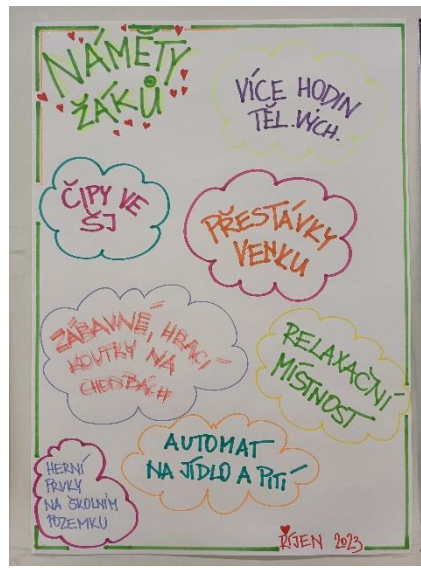 NÁMĚTY
ŽÁKŮ
VÍCE HODIN
TĚL.VÝCH.
ČIPY VE
ŠJ
PŘESTÁVKY
VENKU
ZÁBAVNÉ, HRACÍ
KOUTKY NA
CHODBÁCH
RELAXAČNÍ
MÍSTNOST
AUTOMAT
NA JÍDLO A PITÍ
HERNÍ
PRVKY
NA ŠKOLNÍM
POZEMKU
ŘÍJEN 2023